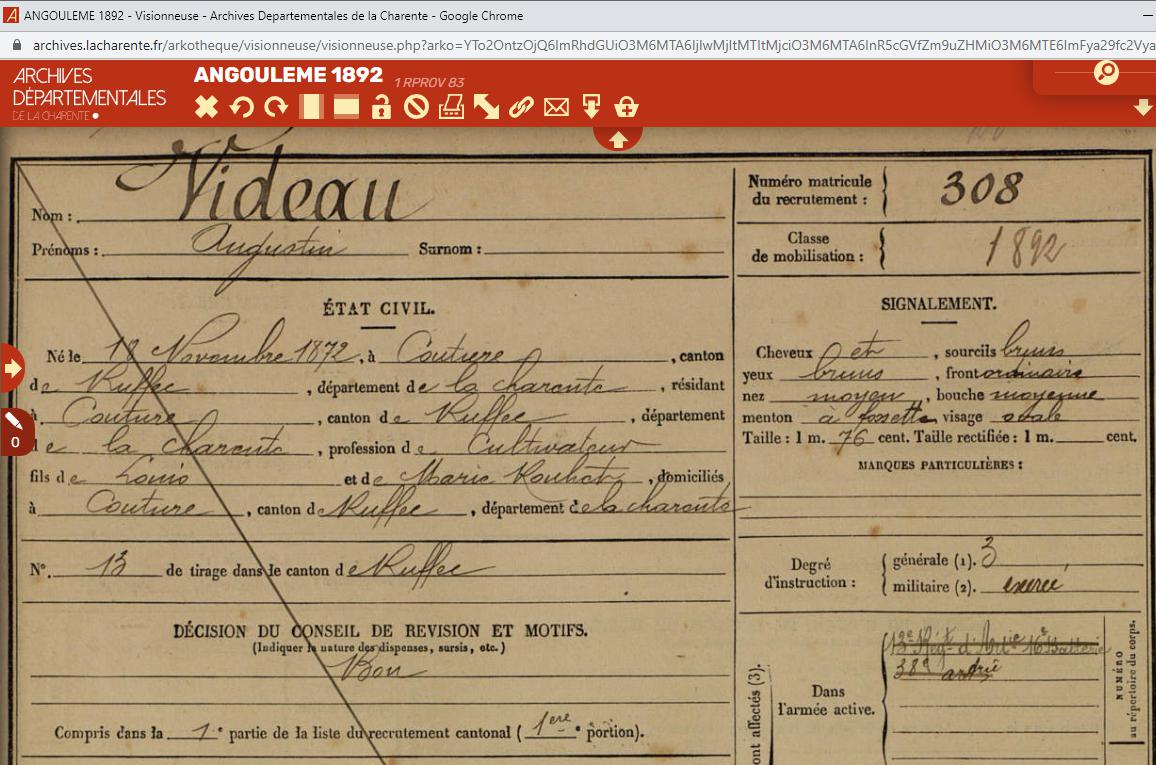 ANGOULEME 1892 - Visionneuse - Archives Departementales de la Charente - Google Chrome
archives.lacharente.fr/arkotheque/visionneuse/visionneuse.php?arko=YTo2OntzOjQ6ImRhdGUiO3M6MTA6IjIwMjItMTItMjciO3M6MTA6InR5cGVfZm9uZHMiO3M6MTE6ImFya29fc2Vya
ARCHIVES
DÉPARTEMENTALES
DE LA CHARENTE
ANGOULEME 1892 1 RPROV 83
0
Nom : Videau
Prénoms : Augustin Surnom :
ÉTAT CIVIL.
Né le 18 Novembre 1872, à Couture, canton
de Ruffec, département de la charente, résidant
à Couture, canton de Ruffec, département
de la charente, profession de Cultivateur
fils de Louis et de Marie, domiciliés
à Couture, canton de Ruffec, département de la charente
N°. 13 de tirage dans le canton de Ruffec
DÉCISION DU CONSEIL DE REVISION ET MOTIFS.
(Indiquer la nature des dispenses, sursis, etc.)
Bon
Compris dans la 1e partie de la liste du recrutement cantonal (1ere portion).
Numéro matricule
du recrutement : 308
Classe
de mobilisation : 1892
SIGNALEMENT.
Cheveux et, sourcils bruns
yeux bruns, front ordinaire
nez moyen, bouche moyenne
menton à fossette, visage ovale
Taille : 1 m. 76 cent. Taille rectifiée : 1 m. cent.
MARQUES PARTICULIÈRES :
Degré
d'instruction :
générale (1). 3
militaire (2). exercé
ont affectés (3).
Dans
l'armée active.
13e Régt d'Artie 16e Batterie
389
NUMÉRO
au répertoire du corps.